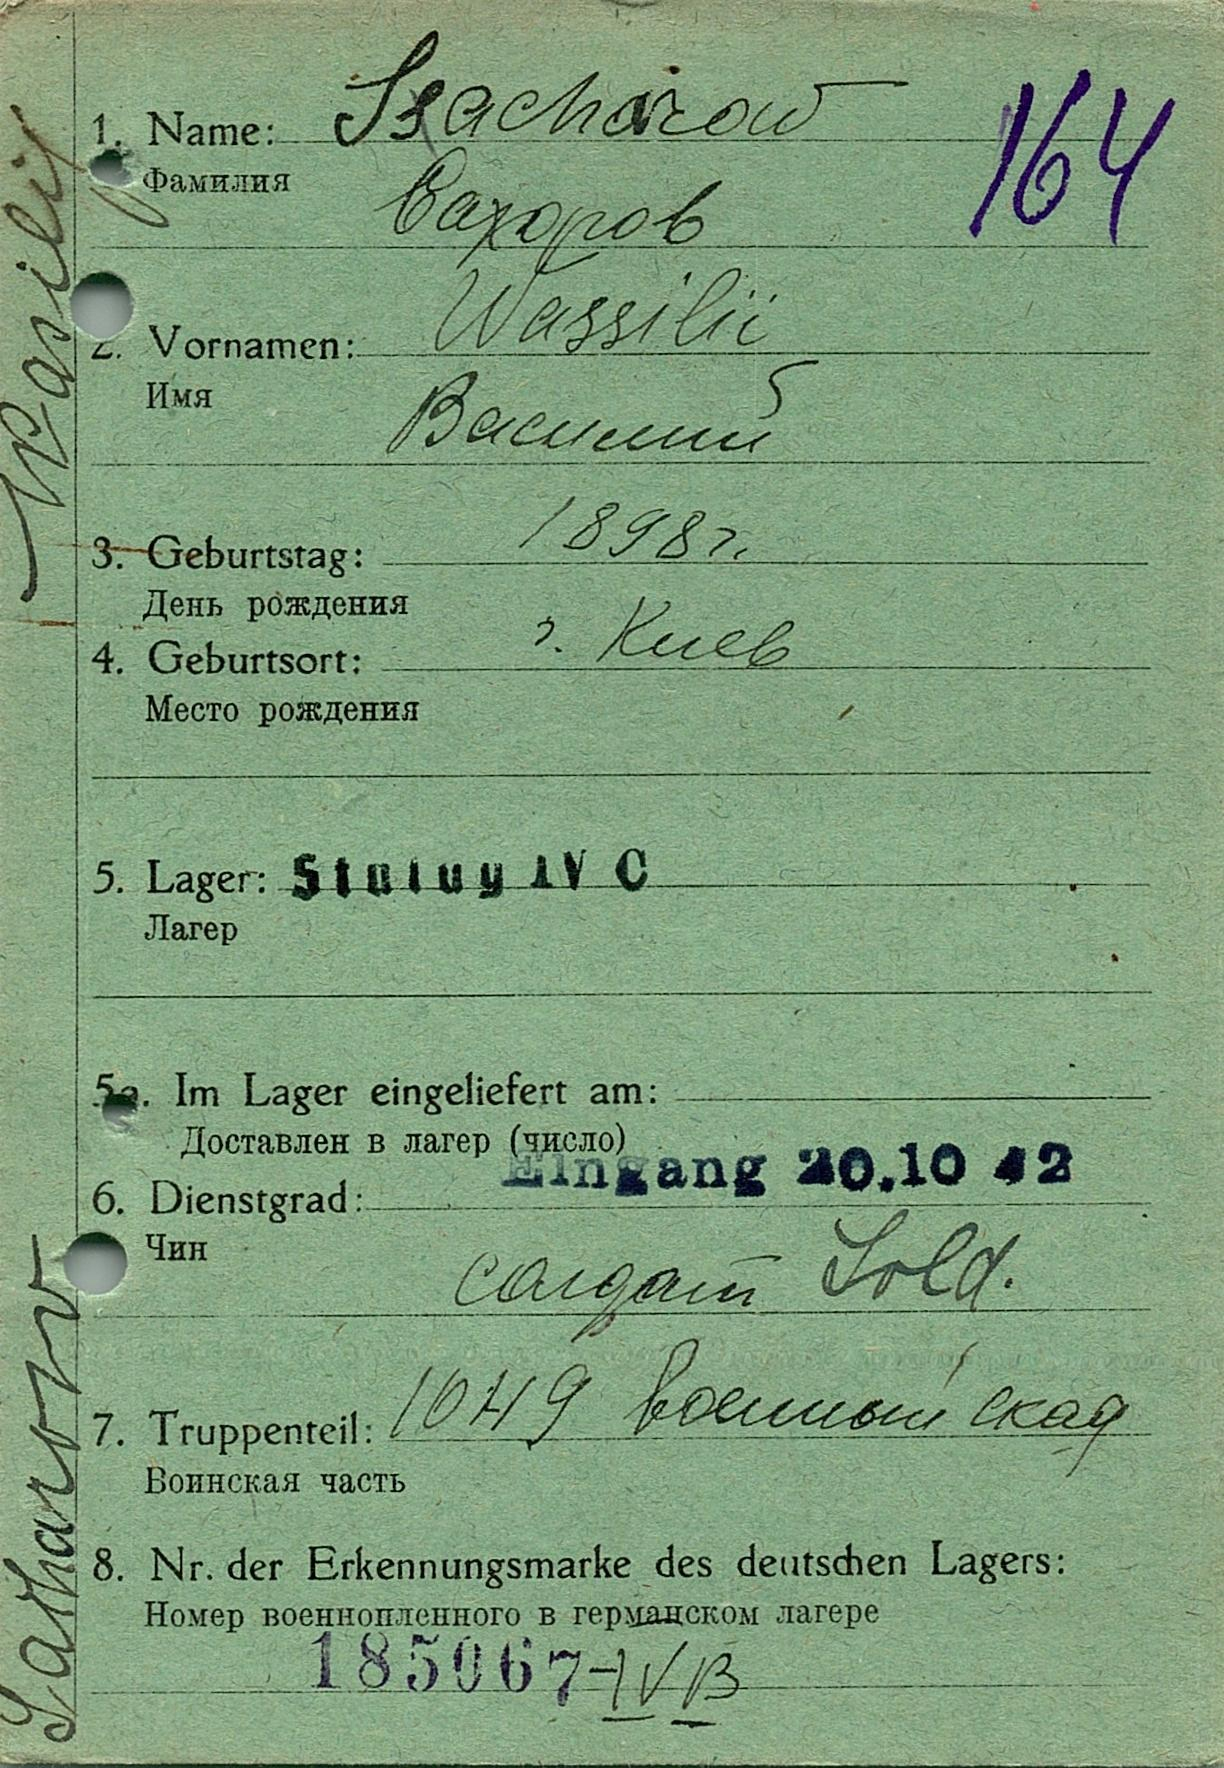 1. Name: Ssacharow
164
Фамилия
Сахоров
2. Vornamen: Wassilii
Имя
Василий
3. Geburtstag: 1898 г.
День рождения
4. Geburtsort: г. Киев
Место рождения
5. Lager: Stalag IV C
Лагер
5a. Im Lager eingeliefert am:
Доставлен в лагер (число)
Eingang 20.10 42
6. Dienstgrad:
Чин
солдат Sold.
7. Truppenteil: 1049 военный склад
Воинская часть
8. Nr. der Erkennungsmarke des deutschen Lagers:
Номер военнопленного в германском лагере
185067-IVB
Sacharow Wasilij